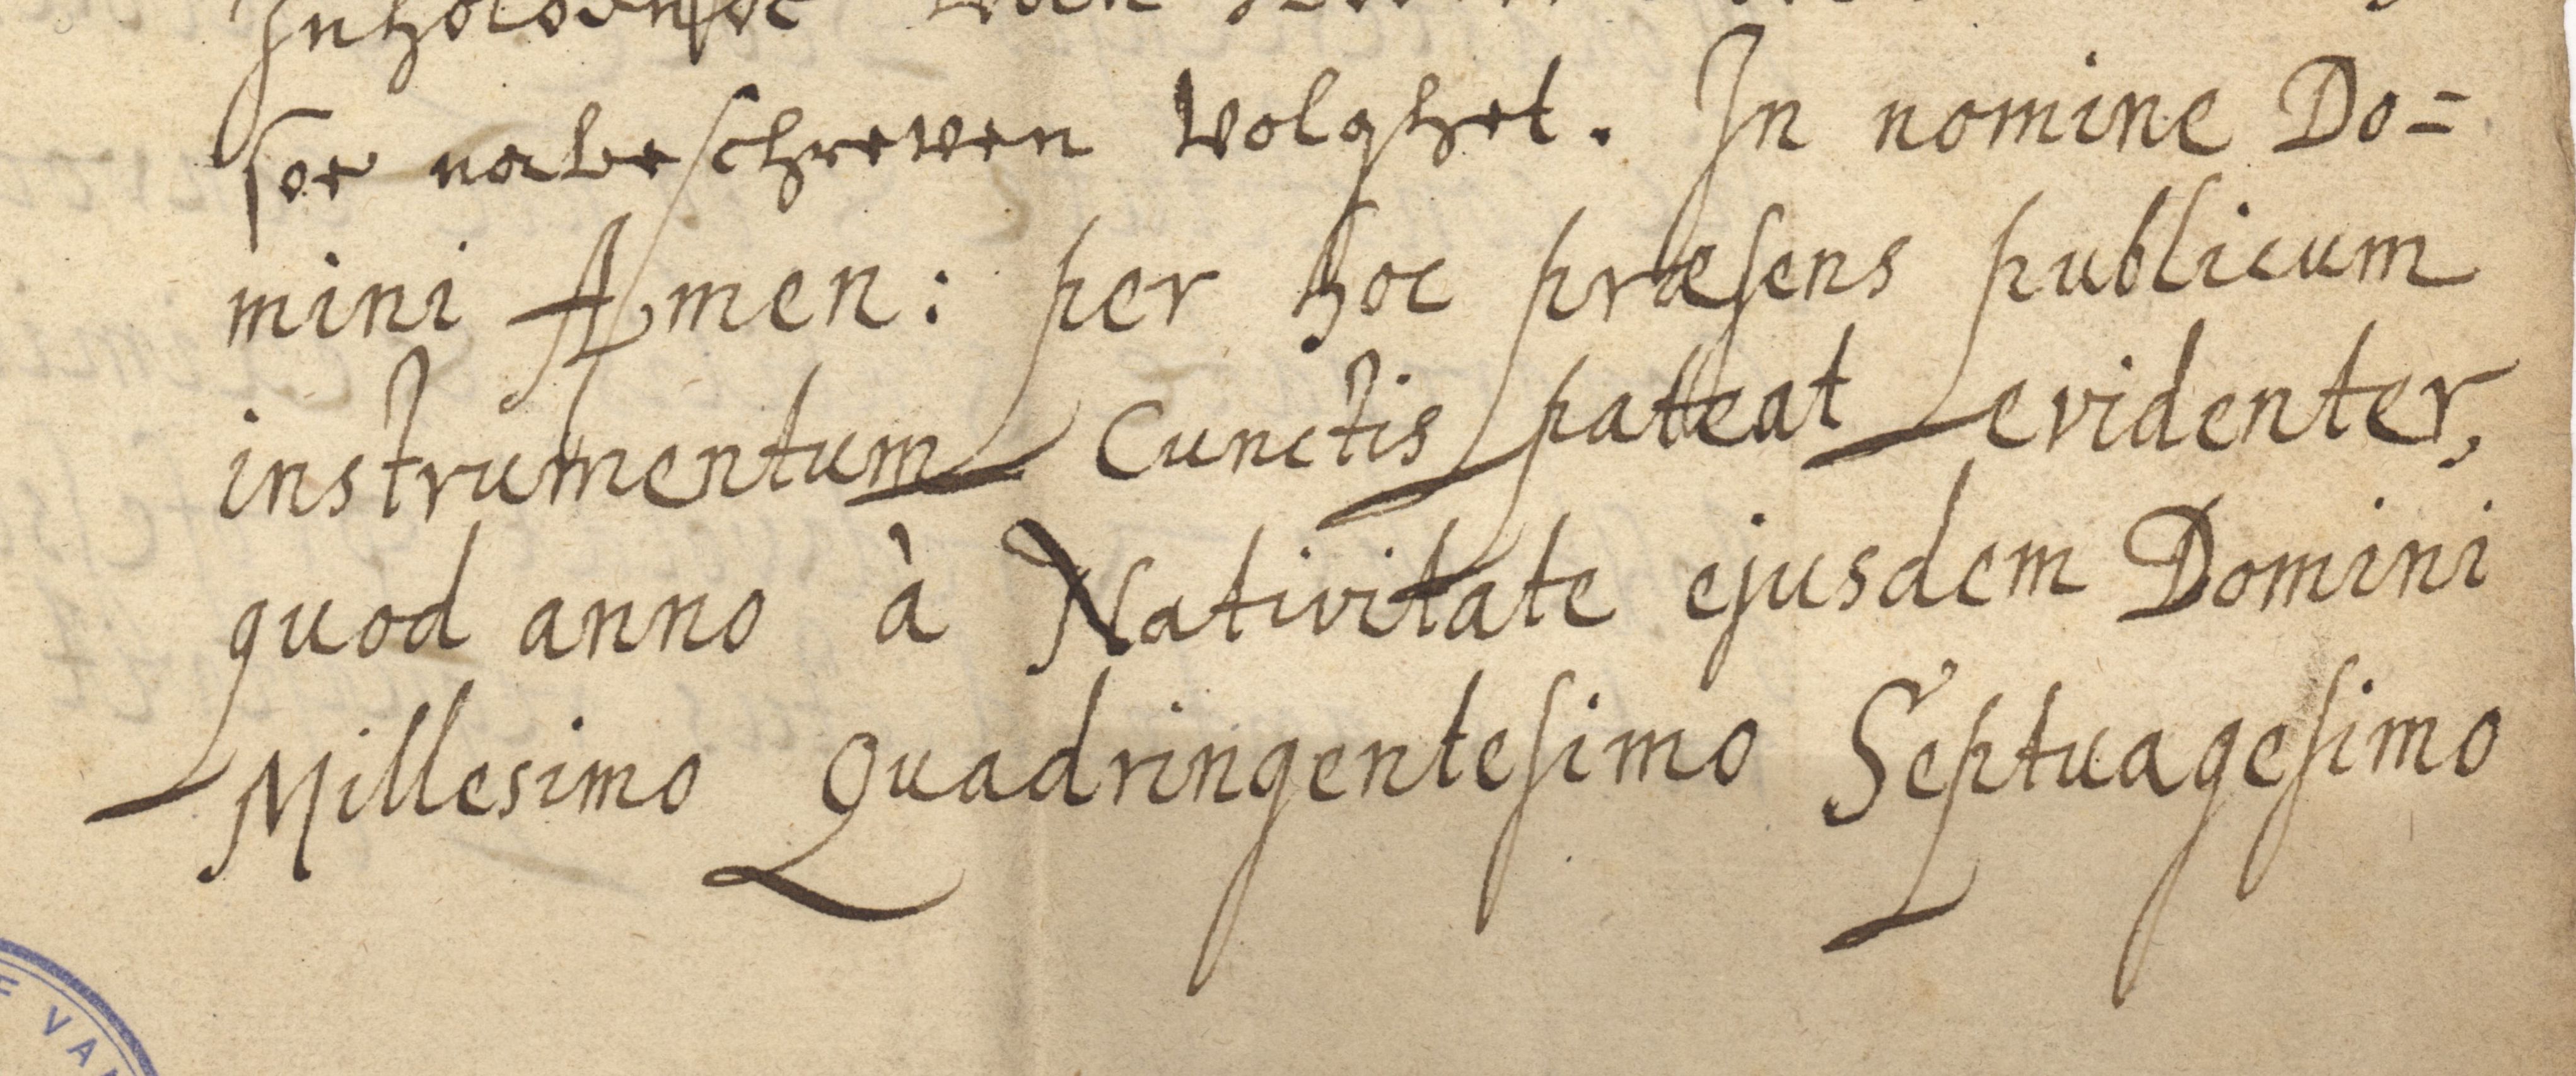 Inholdende van
soe naebeschreven volghet. In nomine Do=
mini Amen: per hoc præsens publicum
instrumentum cunctis pateat evidenter,
quod anno à Nativitate ejusdem Domini
Millesimo Quadringentesimo Septuagesimo
VAN